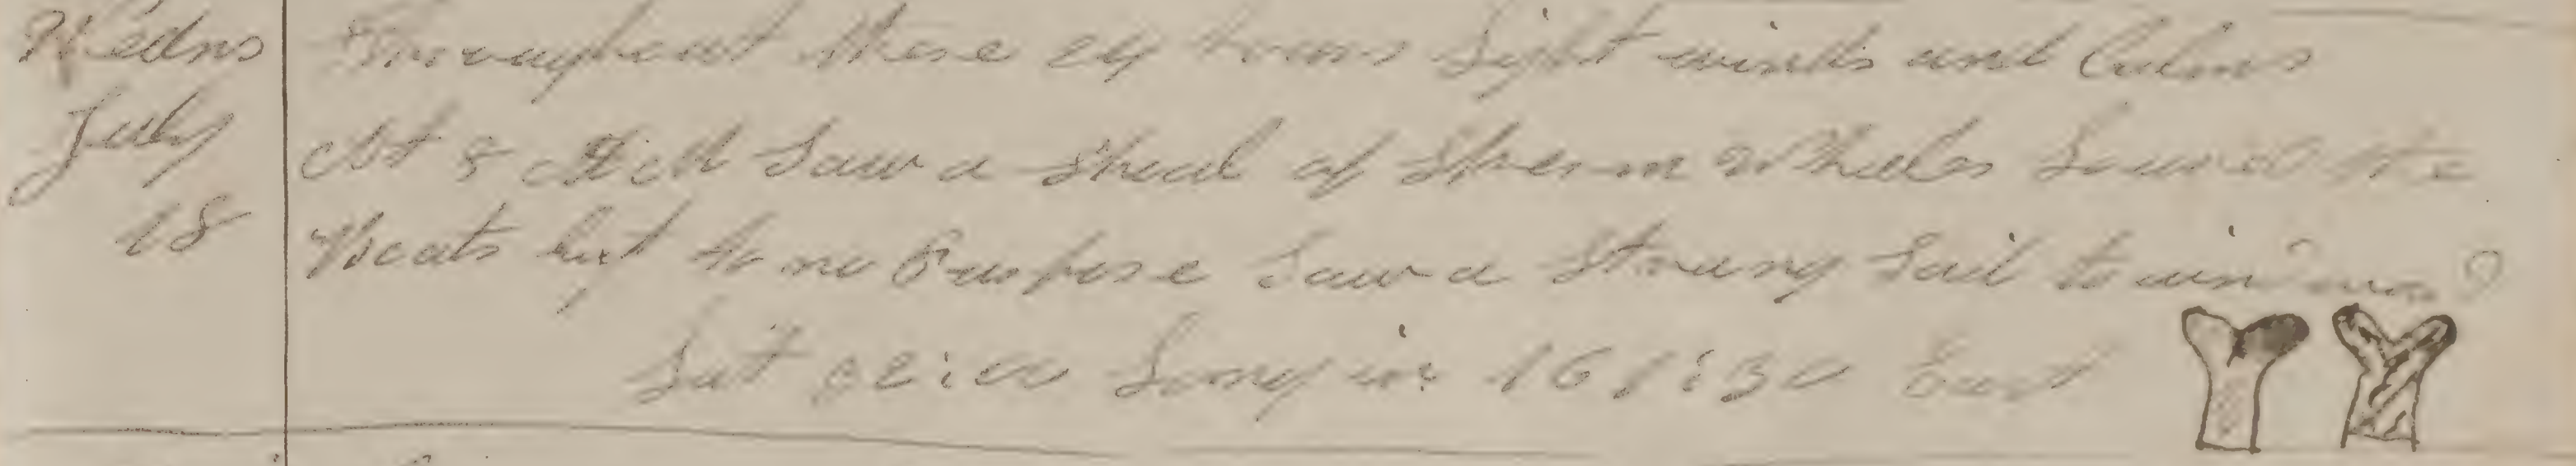 Wedns
July
18
Throughout these 24 hours Light winds and Calms
At 8 AM Saw a Shoal of Sperm Whales Lowerd the
Boats but to no Purpose Saw a Strang Sail to win
Lat Long in 161:30 East